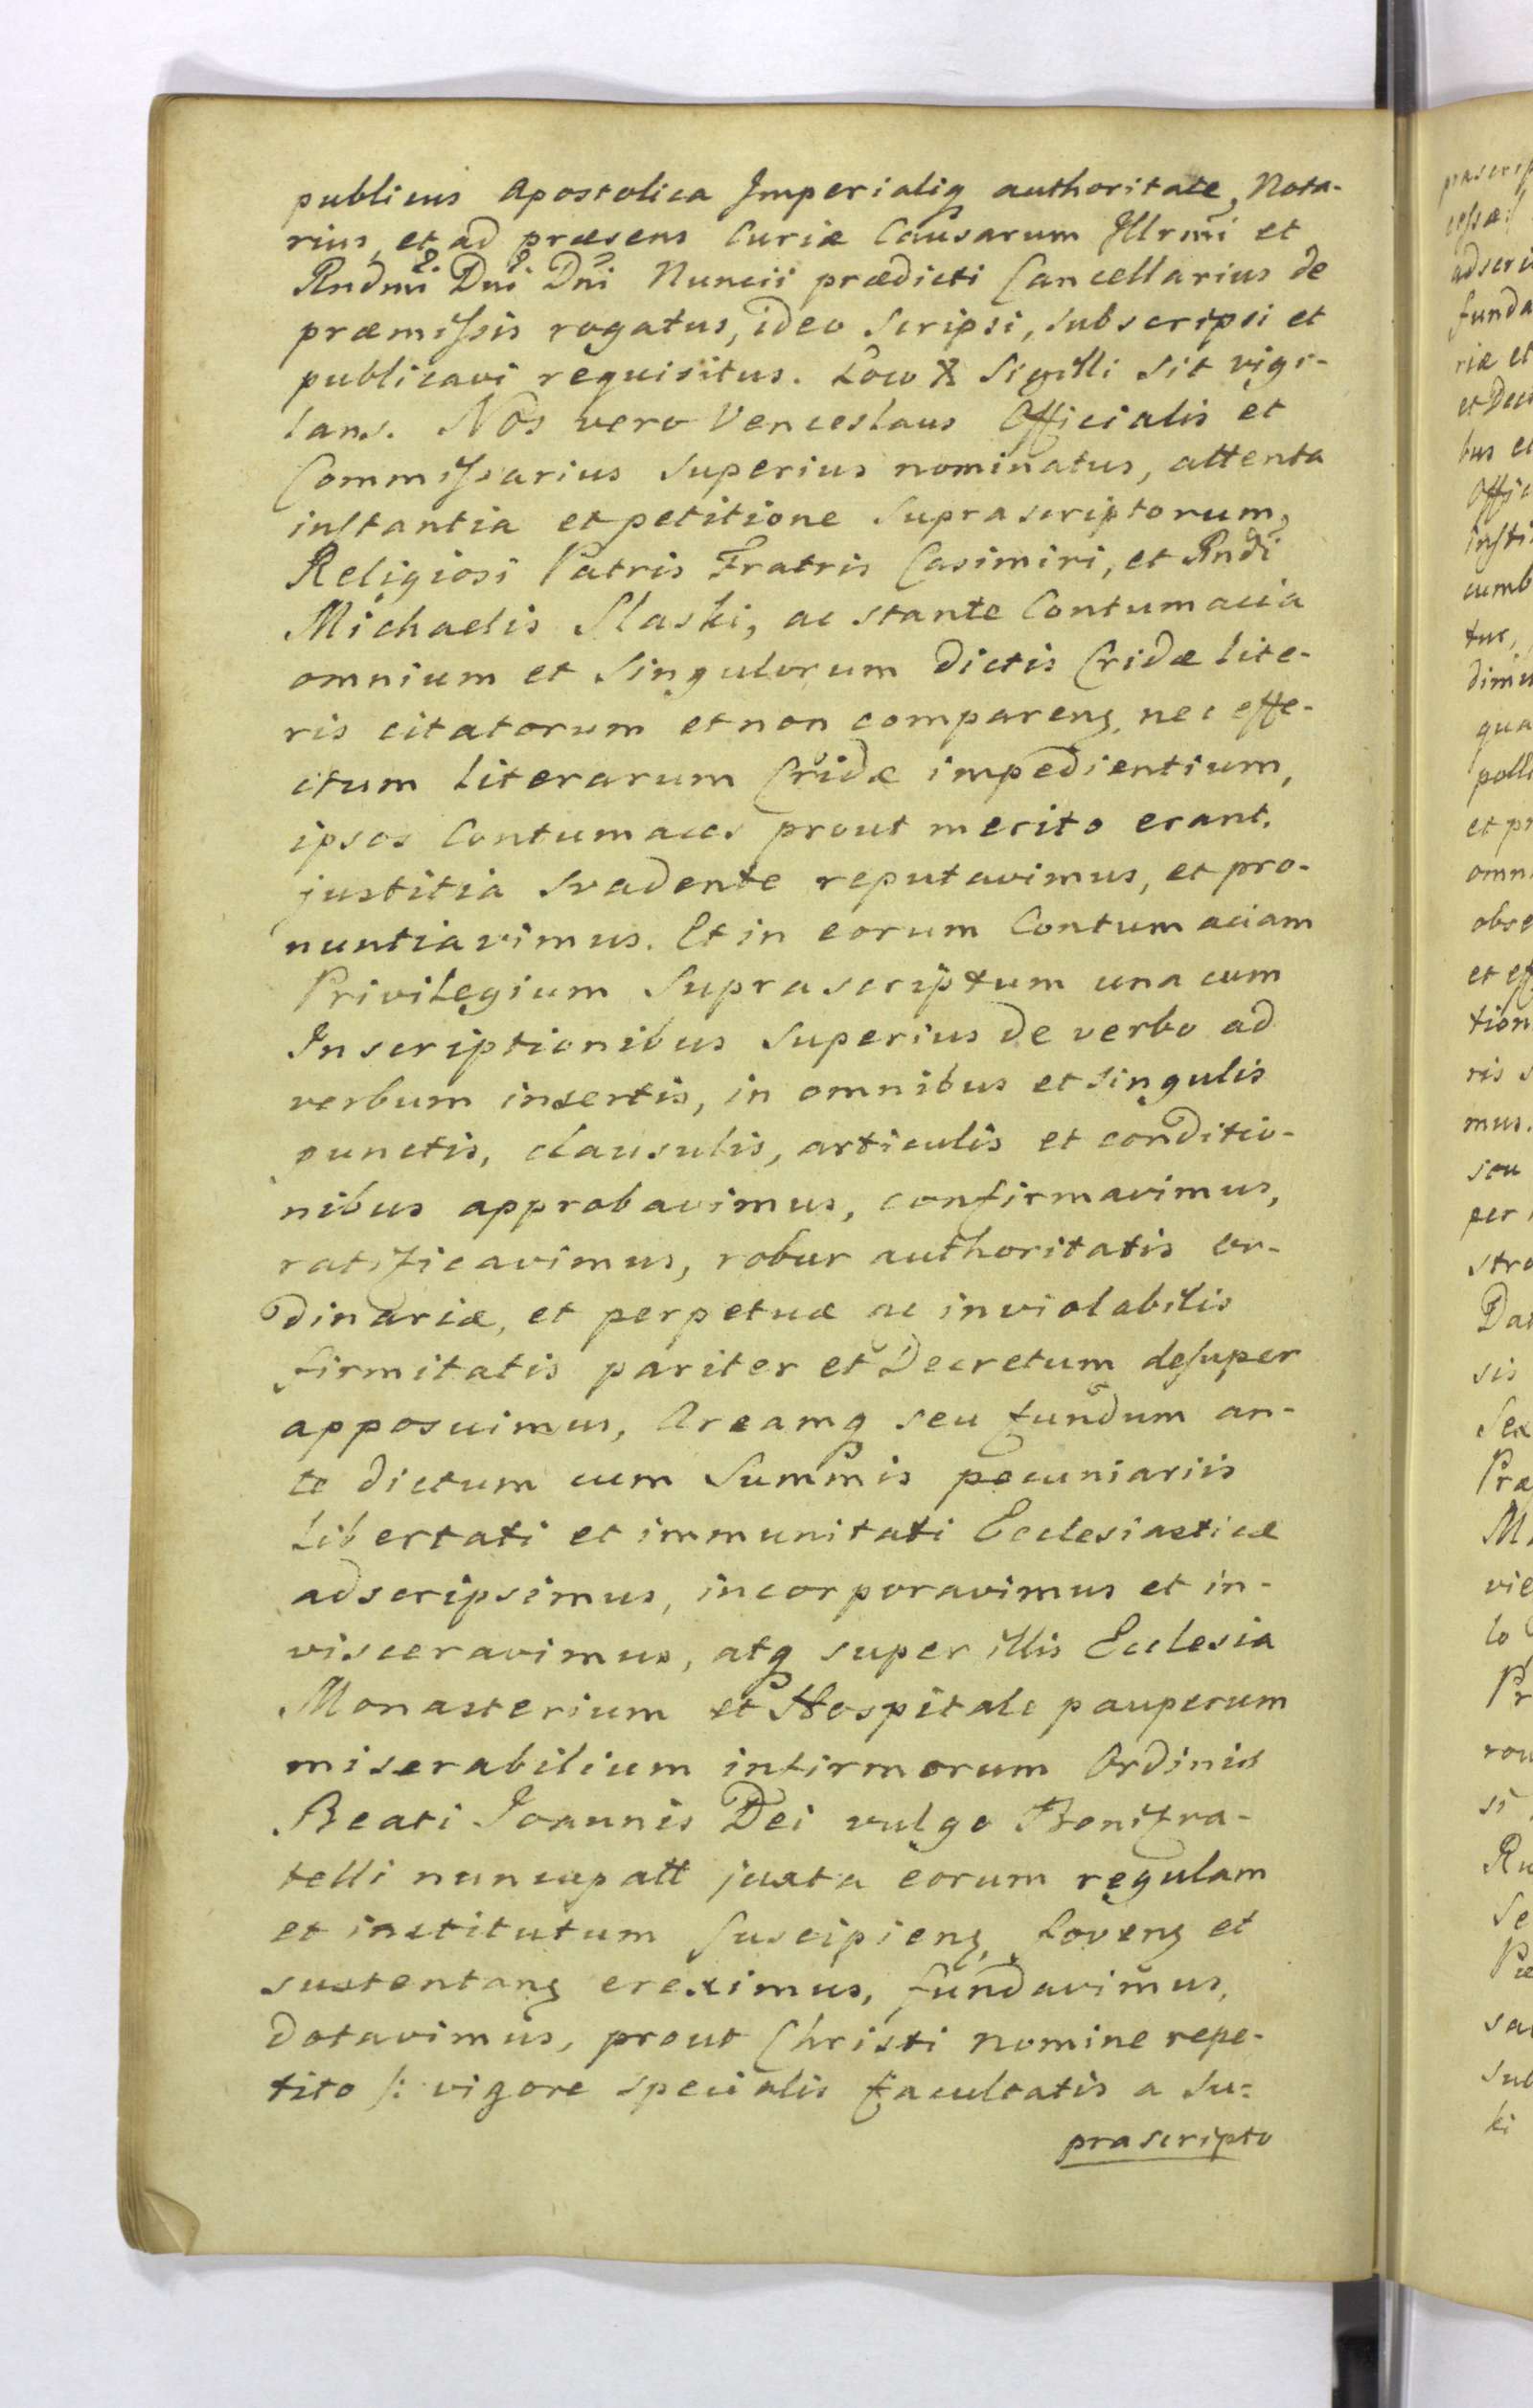 publicus Apostolica Imperialiq authoritate, Nota-
rius, et ad præsens Curiæ Causarum Illrmi et
Rndmi Dni Dni Nuncii prædicti Cancellarius de
præmissis rogatus, ideo scripsi, subscripsi et
publicavi requisitus. Loco X Sigilli sit vigi-
lans. Nos vero Venceslaus Officialis et
Commissarius superius nominatus, attenta
instantia et petitione suprascriptorum,
Religiosi Patris Fratris Casimiri, et Rndi
Michaelis Slaski, ac stante Contumacia
omnium et singulorum dictis Cridæ lite-
ris citatorum et non compareng nec effe-
ctum literarum Cridæ impedientium,
ipsos Contumaces prout merito erant.
justitia svadente reputavimus, et pro-
nuntiavimus. Et in eorum Contumaciam
Privilegium suprascriptum una cum
Inscriptionibus superius de verbo ad
verbum insertis, in omnibus et singulis
punctis, clausulis, articulis et conditio-
nibus approbavimus, confirmavimus,
ratificavimus, robur authoritatis or-
dinariæ, et perpetuæ ac inviolabilis
firmitatis pariter et Decretum desuper
apposuimus, Areamq seu fundum an-
te dictum cum Summis pecuniariis
libertati et immunitati Ecclesiasticæ
adscripsimus, incorporavimus et in-
visceravimus, atq super illis Ecclesia
Monasterium et Hospitale pauperum
miserabilium infirmorum Ordinis
Beati Joannis Dei vulgo Bonifra-
telli nuncupatt juxta eorum regulam
et institutum suscipieng, foveng et
sustentang ereximus, fundavimus,
dotavimus, prout Christi nomine repe-
tito /: vigore specialis facultatis a su=
prascripto